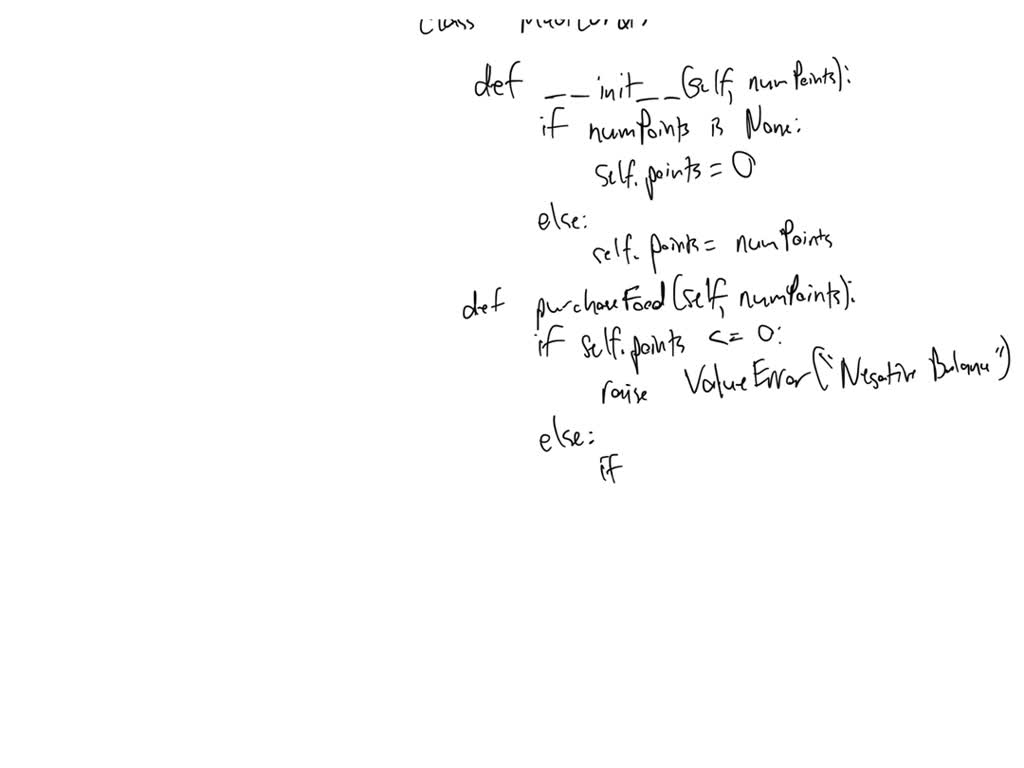 class
def __init__(self, numPoints):
if numPoints is None:
self.points = 0
else:
self.points = numPoints
def purchaseFood(self, numPoints):
if self.points <= 0:
raise ValueError("Negative Balance")
else:
if